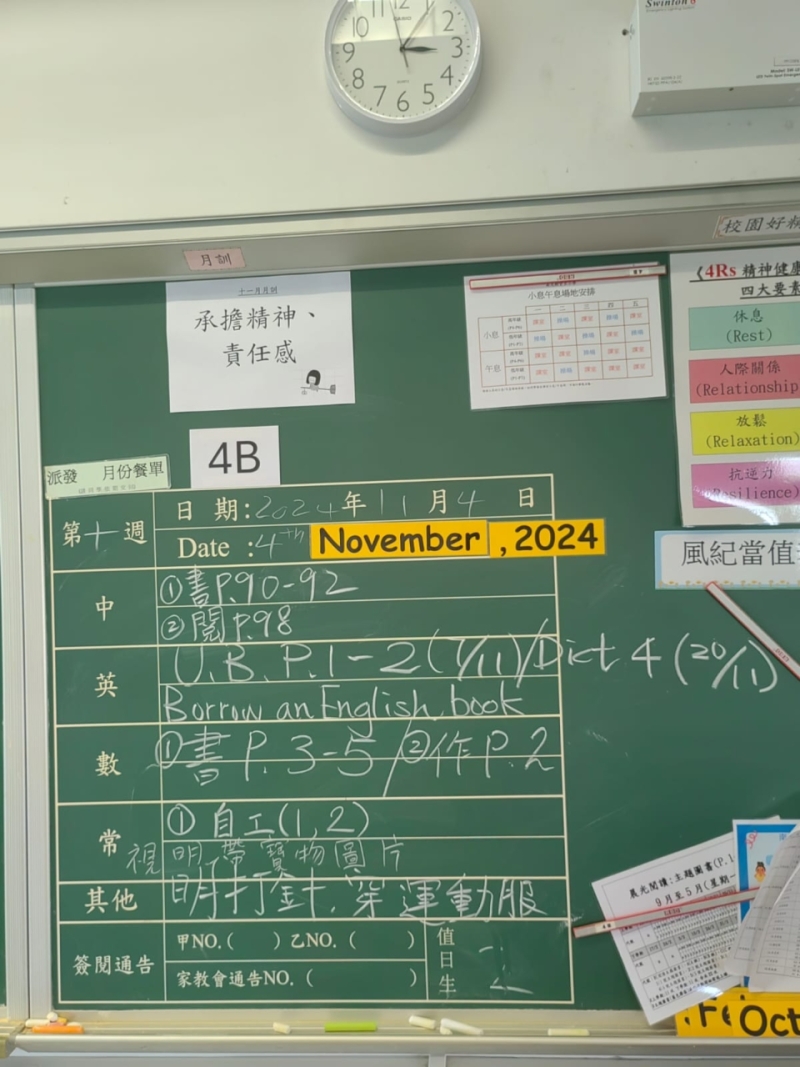 11 12 1 2 3 4 5 6 7 8 9 10
CASIO
QUARTZ
Swinton 6
校園好精
月訓
十一月月訓
承擔精神、
責任感
小息午息場地安排
一 二 三 四 五
小息
午息
《4Rs 精神健康
四大要素
休息
(Rest)
人際關係
(Relationship
放鬆
(Relaxation)
抗逆力
(Resilience)
4B
派發 月份餐單
第十週
日 期:2024年11月4 日
Date :4th November , 2024
風紀當值
中
①書P.90-92
②閱P.98
英
U.B. P.1-2(7/11)/Dict 4 (20/11)
Borrow an English book
數
①書P.3-5/②作P.2
常
①自工(1,2)
視 明帶寶物圖片
其他
明打針,穿運動服
簽閱通告
甲NO.( )乙NO.( )
家教會通告NO.( )
值日生
晨光閱讀:主題圖書(P.1
9月至5月(星期一
Oct